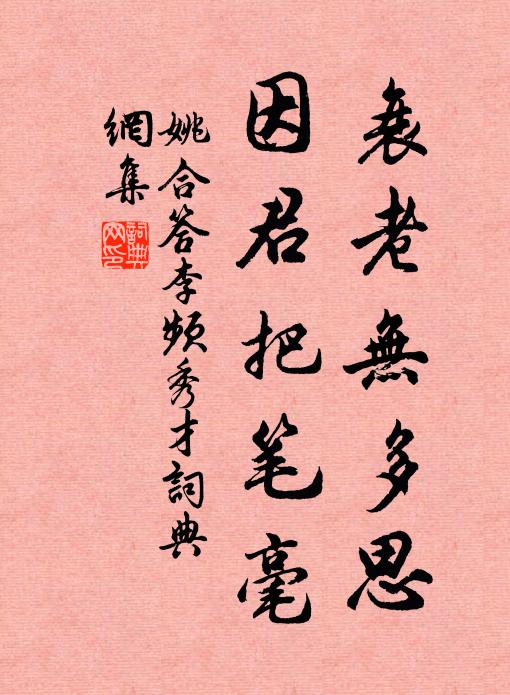 衰老無多思
因君把笔毫
姚合答李頻秀才詞典
網集
詞典網印